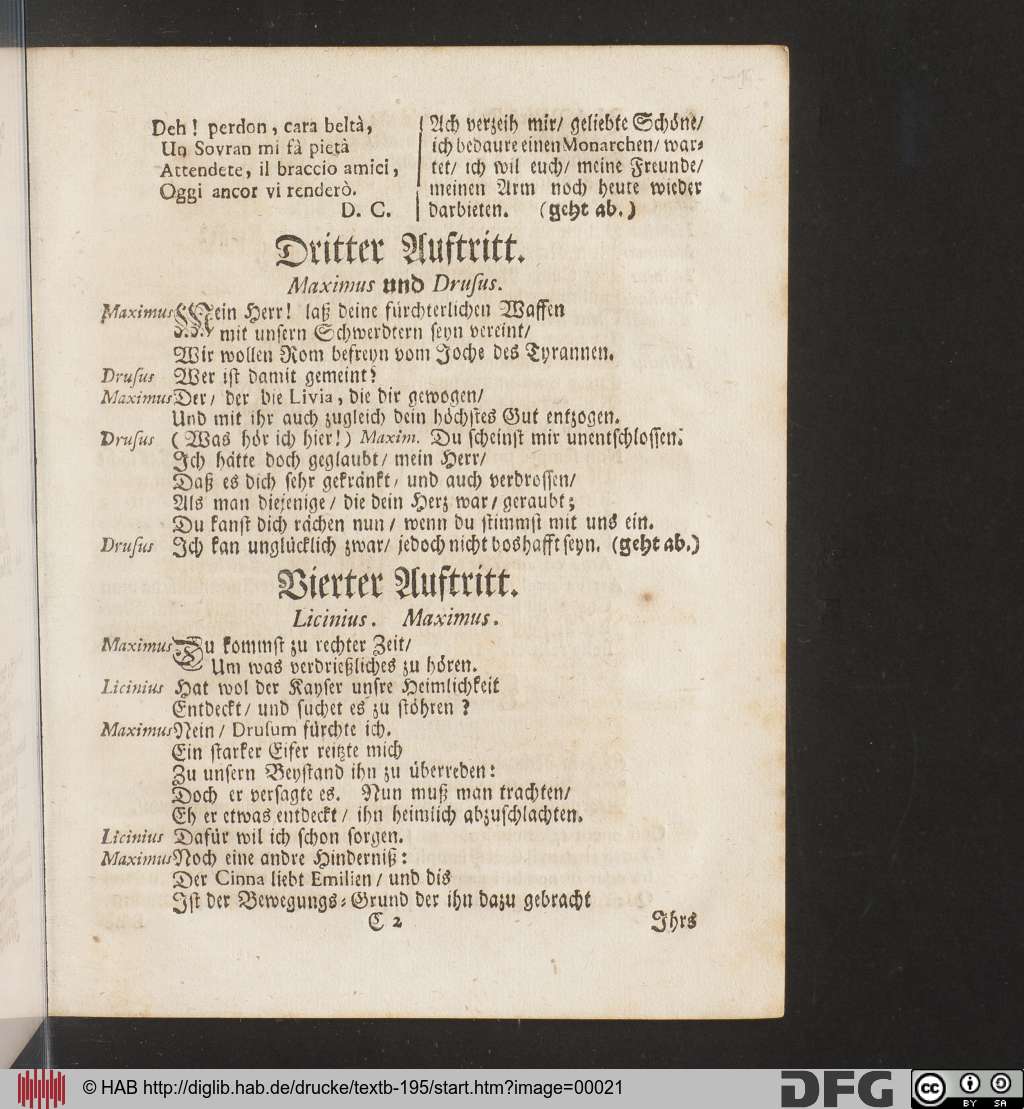 Deh ! perdon, cara beltà,
Un Sovran mi fà pietà
Attendete, il braccio amici,
Oggi ancor vi renderò.
D. C.
Ach verzeih mir/ geliebte Schöne/
ich bedaure einen Monarchen/ war⸗
tet/ ich wil euch/ meine Freunde/
meinen Arm noch heute wieder
darbieten. (geht ab.)
Dritter Auftritt.
Maximus und Drusus.
Maximus Mein Herr! laß deine fürchterlichen Waffen
mit unsern Schwerdtern seyn vereint/
Wir wollen Rom befreyn vom Joche des Tyrannen.
Drusus Wer ist damit gemeint?
Maximus Der/ der die Livia, die dir gewogen/
Und mit ihr auch zugleich dein höchstes Gut entzogen.
Drusus (Was hör ich hier!) Maxim. Du scheinst mir unentschlossen.
Ich hätte doch geglaubt/ mein Herr/
Daß es dich sehr gekränkt/ und auch verdrossen/
Als man diejenige/ die dein Herz war/ geraubt;
Du kanst dich rächen nun/ wenn du stimmst mit uns ein.
Drusus Ich kan unglücklich zwar/ jedoch nicht boshafft seyn. (geht ab.)
Vierter Auftritt.
Licinius. Maximus.
Maximus Du kommst zu rechter Zeit/
Um was verdrießliches zu hören.
Licinius Hat wol der Kayser unsre Heimlichkeit
Entdeckt/ und suchet es zu stöhren ?
Maximus Nein/ Drusum fürchte ich.
Ein starker Eifer reitzte mich
Zu unsern Beystand ihn zu überreden:
Doch er versagte es. Nun muß man trachten/
Eh er etwas entdeckt/ ihn heimlich abzuschlachten.
Licinius Dafür wil ich schon sorgen.
Maximus Noch eine andre Hinderniß:
Der Cinna liebt Emilien/ und dis
Ist der Bewegungs⸗Grund der ihn dazu gebracht
C 2 Ihrs
© HAB http://diglib.hab.de/drucke/textb-195/start.htm?image=00021
DFG
cc BY SA